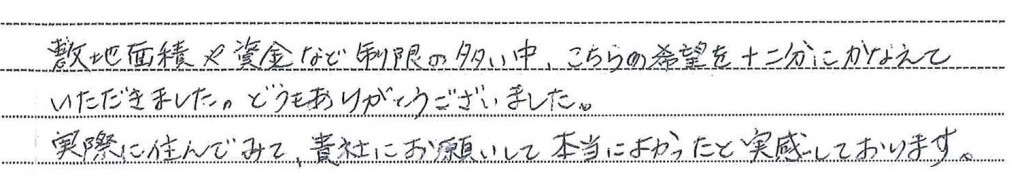 敷地面積や資金など制限の多い中、こちらの希望を十二分にかなえて
いただきました。どうもありがとうございました。
実際に住んでみて、貴社にお願いして本当によかったと実感しております。